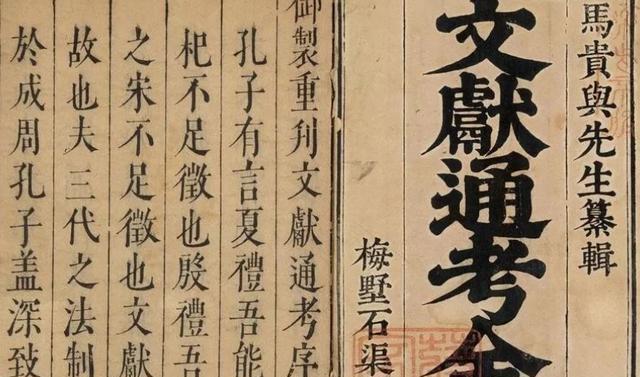 馬貴與先生纂輯
文獻通考全
梅墅石渠
御製重刊文獻通考序
孔子有言夏禮吾能
杞不足徵也殷禮吾
之宋不足徵也文獻
故也夫三代之法制
於成周孔子盖深致